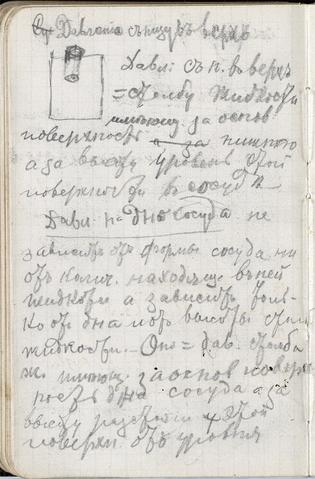 Давленіе снизу въ верхъ
Давл. съ н. въ верхъ
= столбу жидкости
имеющему за основ
поверхность нижнюю
а за высоту уровень этой
поверхности въ сосудѣ
Давл. на дно сосуда не
зависитъ отъ формы сосуда ни
отъ колич. находящ. въ ней
жидкости а зависитъ толь-
ко отъ дна и отъ высоты
жидкости. Оно = дав. столба
ж. имеющ. за основ поверх
ность дна сосуда а за
высоту этой
поверхн. отъ уровня